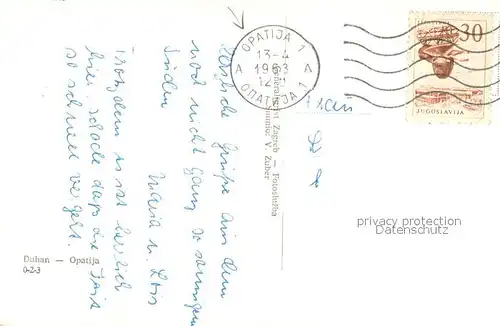 OPATIJA 1
13-4
1963
12
A A
ОПАТИЈА 1
30
JUGOSLAVIJA
Herzliche Grüße aus dem
noch nicht ganz so sonnigen
Süden
Maria u. Lois
Trotzdem es ist herrlich
hier schade dass die Zeit
so schnell vergeht.
Zagreb — Fotoslužba
Snimio: V. Zuber
Frau
privacy protection
Datenschutz
Duhan — Opatija
0-2-3